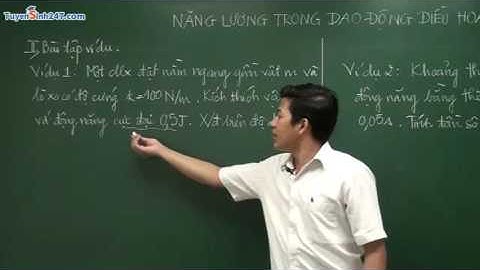 TuyenSinh247.com
NĂNG LƯỢNG TRONG DAO ĐỘNG ĐIỀU HOÀ
II, Bài tập ví dụ.
Ví dụ 1: Một cllx đặt nằm ngang gồm vật m và
lò xo có độ cứng k=100N/m. Kích thích vật
với động năng cực đại 0,5J. X/đ biên độ
Ví dụ 2: Khoảng th
động năng bằng th
0,05s. Tính tần số